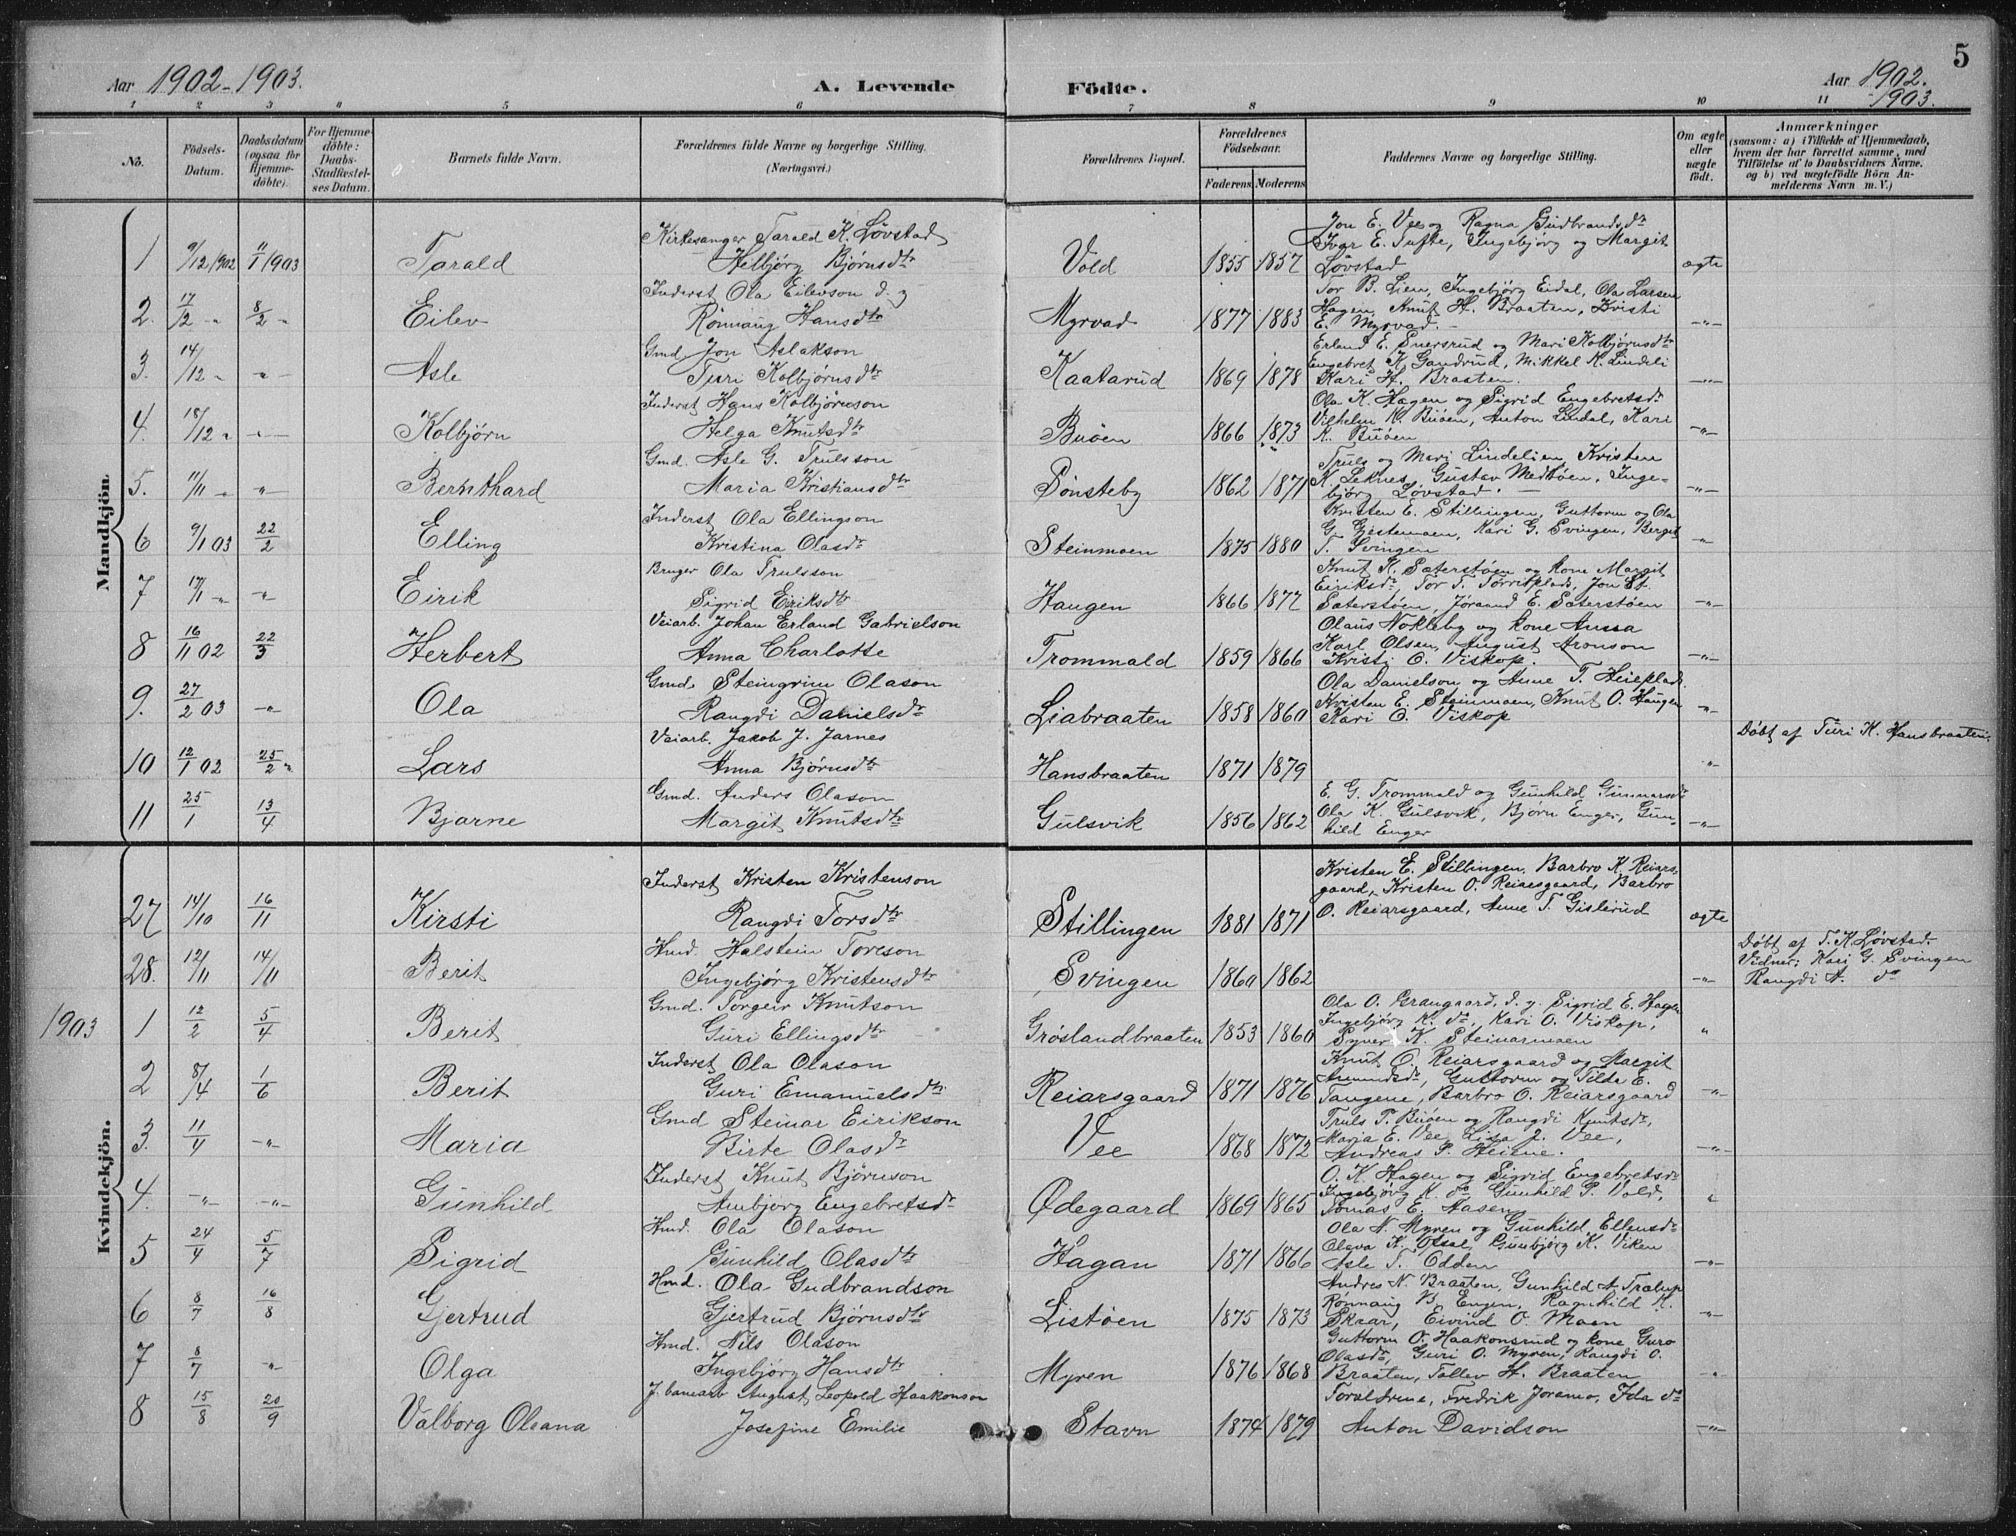 5
Aar 1902-1903.
A. Levende
Födte.
Aar 1902.
-1903.
1 2 3 4 5 6 7 8 9 10 11
No.
Födsels-Datum.
Daabsdatum (ogsaa for Hjemme-döbte).
For Hjemme-döbte: Daabs-Stadfæstel-ses Datum.
Barnets fulde Navn.
Forældrenes fulde Navne og borgerlige Stilling. (Næringsvei.)
Forældrenes Bopæl.
Forældrenes Födselsaar.
Faderens. Moderens.
Faddernes Navne og borgerlige Stilling.
Om ægte eller uægte födt.
Anmærkninger
(saasom: a) i Tilfælde af Hjemmedaab, hvem der har forrettet samme, med Tilföielse af to Daabsvidners Navne. og b) ved uægtefödte Börn An-melderens Navn m. V.)
Mandkjön.
1 9/12 1902 11/1 1903 Tarald Kirkesanger Tarald K. Løvstad
Helbjørg Bjørnsdtr Vold 1855 1857 Jon E. Vee og Ragna Gudbrandsdtr
Ivar E. Tufte, Ingebjørg og Margit
Løvstad ægte
2. 17/12 " 8/2 " Eilev Inderst Ola Eilevson d. y
Rønnaug Hansdtr Myrvad 1877 1883 Tor B. Lien, Ingebjørg Eidal, Ola Larsen
Hagen, Knut H. Braaten, Kristi
E. Myrvad. -"-
3. 14/12 " -"- Asle Gmd Jon Aslakson
Turi Kolbjørnsdtr Kaatarud 1869 1878 Erland E. Snersrud og Mari Kolbjørnsdtr
Engebret K. Gandrud, Mikkel K. Lindeli
Kari H. Braaten. -"-
4. 18/12 " -"- Kolbjørn Inderst Hans Kolbjørnson
Helga Knutsdtr Buøen 1866 1873 Ola K. Hagen og Sigrid Engebretsdtr
Vilhelm K. Buøen, Anton Lindal, Kari
K. Buøen -"-
5. 11/11 " -"- Bernthard Gmd. Asle G. Trulsson
Maria Kristiansdtr Sønsteby 1862 1871 Truls og Mari Lindelien, Kristen
K. Leknes, Gustav Medbøen, Inge-
bjørg Løvstad. -"-
6 9/1 03 22/2 Elling Inderst Ola Ellingson
Kristina Olasdtr Steinmoen 1875 1880 Kristen E. Stillingen, Guttorm og Ola
G. Gjestemoen, Kari G. Svingen, Bergit
T. Svingen -"-
7 17/1 " -"- Eirik Bruger Ola Trulsson
Sigrid Eiriksdtr Haugen 1866 1877 Knut K. Sæterstøen og kone Margit
Eiriksdtr, Tor T. Torritplads, Jon St.
Sæterstøen, Jøraand E. Sæterstøen -"-
8 16/11 02 22/3 Herbert Veiarb. Johan Erland Gabrielson
Anna Charlotte Trommald 1859 1866 Olaus Nokleby og kone Anna
Karl Olsen, August Aronson
Kristi O. Viskop. -"-
9. 27/2 03 -"- Ola Gmd. Steingrim Olason
Rangdi Danielsdtr Liabraaten 1858 1860 Ola Danielson og Anne T. Heieplads.
Kristen E. Steinmoen, Knut O. Haugen
Kari O. Viskop -"-
10 12/1 02 25/2 " Lars Veiarb. Jakob J. Jarnes
Anna Bjørnsdtr Hansbraaten 1871 1879 " Døbt af Turi K. Hansbraaten.
11 25/1 13/4 Bjarne Gmd. Anders Olason
Margit Knutsdtr Gulsvik 1856 1862 E. G. Trommald og Gunhild Gunnarsdtr
Ola K. Gulsvik, Bjørn Enger, Gun-
hild Enger -"-
Kvindekjön.
27 14/10 16/11 Kirsti Inderst Kristen Kristenson
Rangdi Torsdtr Stillingen 1881 1871 Kristen E. Stillingen, Barbro K. Reiars-
gaard, Kristen O. Reiarsgaard, Barbro
O. Reiarsgaard, Anne T. Gislerud ægte
28. 12/11 14/11 Berit Hmd. Halstein Toreson
Ingebjørg Kristensdtr Svingen 1860 1862 -"- Døbt af T. K. Løvstad.
Vidner; Kari G. Svingen
Rangdi A. do
1903 1 12/2 5/4 Berit Gmd. Torgeir Knutson
Guri Ellingsdtr Grøslandbraaten 1853 1860 Ola O. Braugaard, d. y. Sigrid E. Hagen
Ingebjørg K. do, Kari O. Viskop,
Syver K. Steinarmoen "
2 8/4 1/6 Berit Inderst Ola Olason
Guri Emanuelsdtr Reiarsgaard 1871 1876 Knut O. Reiarsgaard og Margit
Amundsdtr, Guttorm og Tilda E.
Tangene, Barbro O. Reiarsgaard -"-
3. 11/4 -"- Maria Gmd Steinar Eirikson
Birte Olasdtr Vee 1868 1872 Truls T. Buøen og Rangdi Knutsdtr,
Maria E. Vee, Lisa J. Vee,
Andreas P. Heime. -"-
4. -"- -"- Gunhild Inderst Knut Bjørnson
Ambjørg Engebretsdtr Ødegaard 1869 1865 O. K. Hagen og Sigrid Engebretsdtr
Ingebjørg K. do Gunhild P. Vold,
Tomas E. Aasen "
5 24/4 5/7 Sigrid Hmd. Ola Olason
Gunhild Olasdtr Hagan 1871 1866 Ola N. Myren og Gunhild Ellensdtr
Oleva K. Opsal, Gunbjørg K. Viken
Asle T. Odden -"-
6 8/7 16/8 Gjertrud Hmd. Ola Gudbrandson
Gjertrud Bjørnsdtr Listøen 1875 1873 Andres N. Braaten, Gunhild A. Tralup
Rønnaug B. Engen, Ragnhild K.
Skaar, Eivind O. Moen -"-
7 8/7 -"- Olga Hmd. Nils Olason
Ingebjørg Hansdtr Myren 1876 1868 Guttorm O. Haakonsrud og kone Guro
Olasdtr, Guri O. Myren, Rangdi O.
Braaten, Tollev H. Braaten "
8 15/8 20/9 Valborg Oleana J. banearb August Leopold Haakonson
Josefine Emilie Stavn 1874 1879 Forældrene, Fredrik Joramo, Ida do
Anton Davidson -"-